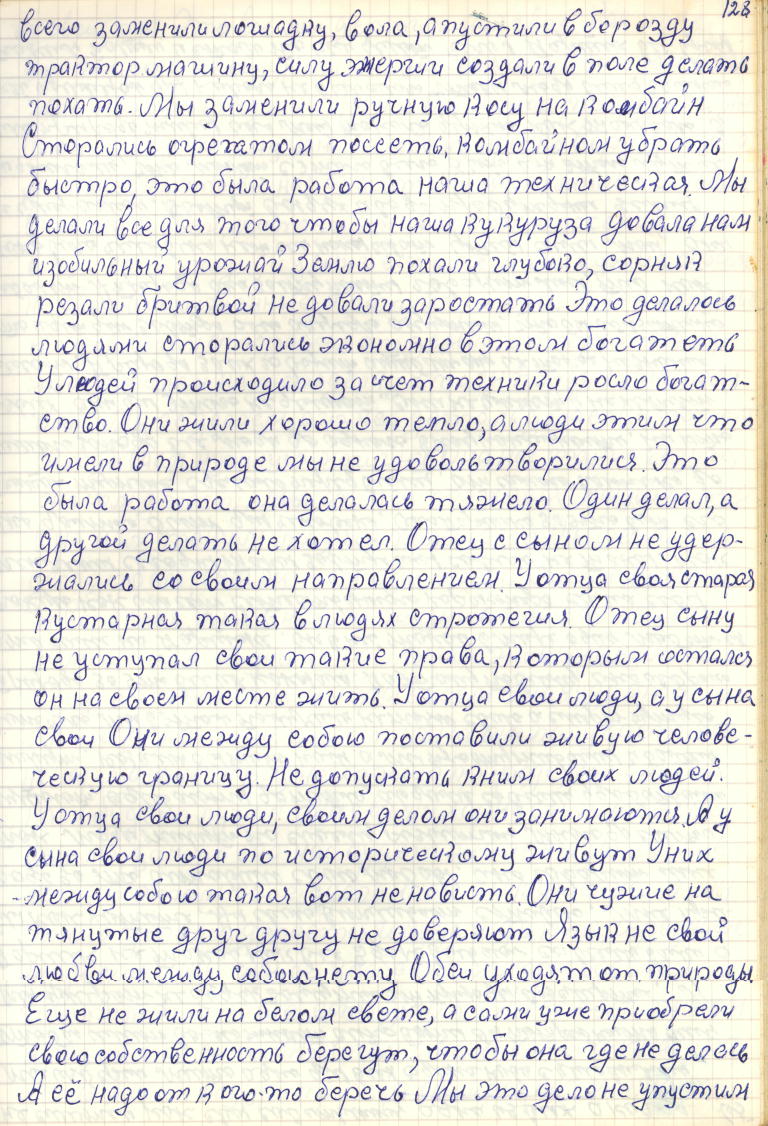 128
всего заменили лошадку, вола, а пустили в борозду
трактор машину, силу энергии создали в поле делать
похать. Мы заменили ручную косу на комбайн
Сторались огрегатом посееть, комбайном убрать
быстро, это была работа наша техническая. Мы
делали все для того чтобы наша кукуруза довала нам
изобильный урожай Землю похали глубоко, сорняк
резали бритвой не довали заростать Это делалось
людями сторались экономно в этом богатеть
У людей происходило за счет техники росло богат-
ство. Они жили хорошо тепло, а люди этим что
имели в природе мы не удовольтворилися. Это
была работа она делалась тяжело. Один делал, а
другой делать не хотел. Отец с сыном не удер-
жались со своим направлением. У отца своя старая
кустарная такая в людях стротегия. Отец сыну
не уступал свои такие права, которым остался
он на своем месте жить. У отца свои люди, а у сына
свои Они между собою поставили живую челове-
ческую границу. Не допускать к ним своих людей.
У отца свои люди, своим делом они занимаются. А у
сына свои люди по историческому живут У них
между собою такая вот не нависть. Они чужие на
тянутые друг другу не доверяют Язык не свой
любви между собою нету Обеи уходят от природы
Еще не жили на белом свете, а сами уже приобрели
свою собственность берегут, чтобы она где не делась
А её надо от кого-то беречь Мы это дело не упустим